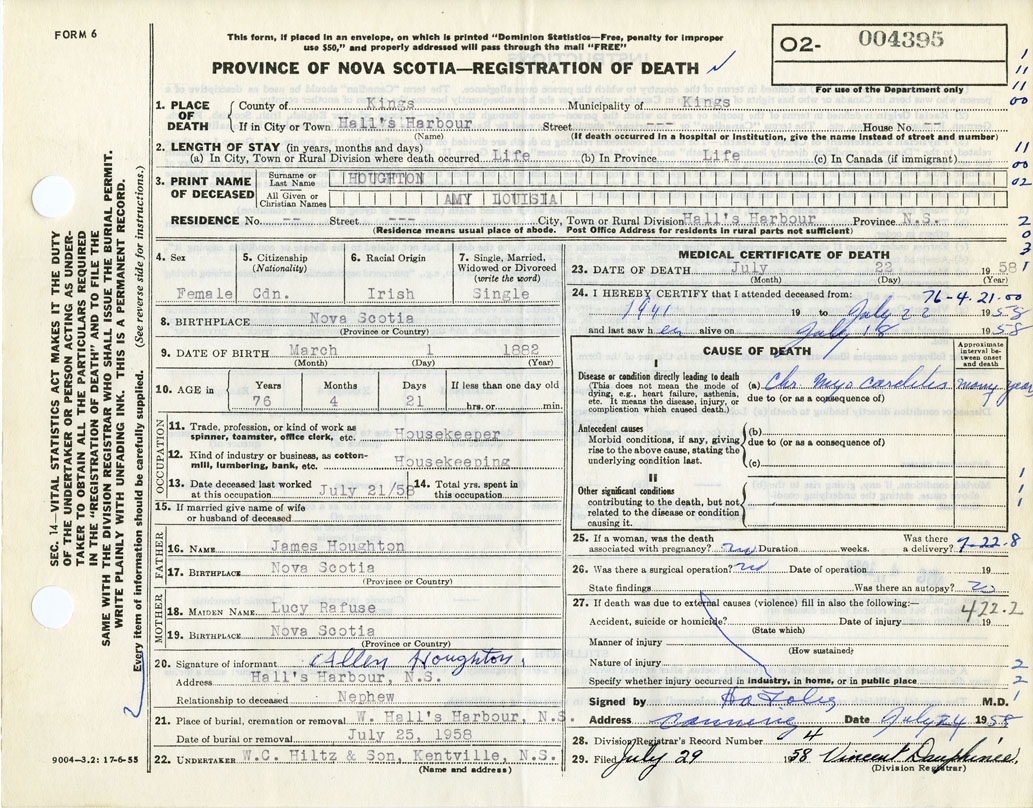 FORM 6
This form, if placed in an envelope, on which is printed "Dominion Statistics—Free, penalty for improper
use $50," and properly addressed will pass through the mail "FREE"
PROVINCE OF NOVA SCOTIA—REGISTRATION OF DEATH
02- 004395
For use of the Department only
1. PLACE OF DEATH
County of Kings Municipality of Kings
If in City or Town Hall's Harbour Street --- House No. --
(Name) (If death occurred in a hospital or institution, give the name instead of street and number)
2. LENGTH OF STAY (in years, months and days)
(a) In City, Town or Rural Division where death occurred Life (b) In Province Life (c) In Canada (if immigrant)
3. PRINT NAME OF DECEASED
Surname or Last Name HOUGHTON
All Given or Christian Names AMY LOUISIA
RESIDENCE No. -- Street --- City, Town or Rural Division Hall's Harbour Province N.S.
(Residence means usual place of abode. Post Office Address for residents in rural parts not sufficient)
4. Sex
Female
5. Citizenship
(Nationality)
Cdn.
6. Racial Origin
Irish
7. Single, Married,
Widowed or Divorced
(write the word)
Single
8. BIRTHPLACE Nova Scotia
(Province or Country)
9. DATE OF BIRTH March 1 1882
(Month) (Day) (Year)
10. AGE in
Years Months Days If less than one day old
76 4 21 hrs. or min.
OCCUPATION
11. Trade, profession, or kind of work as
spinner, teamster, office clerk, etc. Housekeeper
12. Kind of industry or business, as cotton-
mill, lumbering, bank, etc. Housekeeping
13. Date deceased last worked
at this occupation July 21/58
14. Total yrs. spent in
this occupation
15. If married give name of wife
or husband of deceased
FATHER
16. NAME James Houghton
17. BIRTHPLACE Nova Scotia
(Province or Country)
MOTHER
18. MAIDEN NAME Lucy Rafuse
19. BIRTHPLACE Nova Scotia
(Province or Country)
20. Signature of informant Allen Houghton,
Address Hall's Harbour, N.S.
Relationship to deceased Nephew
21. Place of burial, cremation or removal W. Hall's Harbour, N.S.
Date of burial or removal July 25, 1958
22. UNDERTAKER W.C. Hiltz & Son, Kentville, N.S.
(Name and address)
MEDICAL CERTIFICATE OF DEATH
23. DATE OF DEATH July 22 1958
(Month) (Day) (Year)
76-4.21-00
24. I HEREBY CERTIFY that I attended deceased from:
1941 19 to July 22 1958
and last saw her alive on July 18 1958
CAUSE OF DEATH
Approximate
interval be-
tween onset
and death
I
Disease or condition directly leading to death
(This does not mean the mode of
dying, e.g., heart failure, asthenia,
etc. It means the disease, injury, or
complication which caused death.)
(a) Chr Myocarditis many years
due to (or as a consequence of)
Antecedent causes
Morbid conditions, if any, giving
rise to the above cause, stating the
underlying condition last.
(b)
due to (or as a consequence of)
(c)
II
Other significant conditions
contributing to the death, but not
related to the disease or condition
causing it.
25. If a woman, was the death
associated with pregnancy? no Duration weeks.
Was there
a delivery?
7-22-8
26. Was there a surgical operation? no Date of operation 19
State findings Was there an autopsy? no
27. If death was due to external causes (violence) fill in also the following:—
422.2
Accident, suicide or homicide? Date of injury 19
(State which)
Manner of injury
(How sustained)
Nature of injury
Specify whether injury occurred in industry, in home, or in public place
Signed by M.D.
Address Canning Date July 24 1958
28. Division Registrar's Record Number 4
29. Filed July 29 1958 Vincent Dauphinee.
(Division Registrar)
SEC. 14—VITAL STATISTICS ACT MAKES IT THE DUTY
OF THE UNDERTAKER OR PERSON ACTING AS UNDER-
TAKER TO OBTAIN ALL THE PARTICULARS REQUIRED
IN THE "REGISTRATION OF DEATH" AND TO FILE THE
SAME WITH THE DIVISION REGISTRAR WHO SHALL ISSUE THE BURIAL PERMIT.
WRITE PLAINLY WITH UNFADING INK. THIS IS A PERMANENT RECORD.
Every item of information should be carefully supplied. (See reverse side for instructions.)
9004—3.2: 17-6-55
1
11
00
11
00
02
2
0
3
1
1
1
1
2
2
1